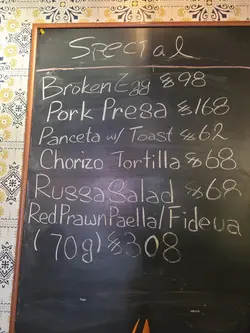 Special
Broken Egg $98
Pork Presa $168
Panceta w/ Toast $62
Chorizo Tortilla $68
Russa Salad $68
Red Prawn Paella/Fideua
(70g) $308